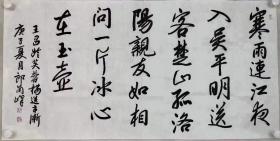 寒雨連江夜
入吴平明送
客楚山孤洛
陽親友如相
問一片冰心
在玉壺
王昌龄芙蓉楼送辛漸
庚子夏月